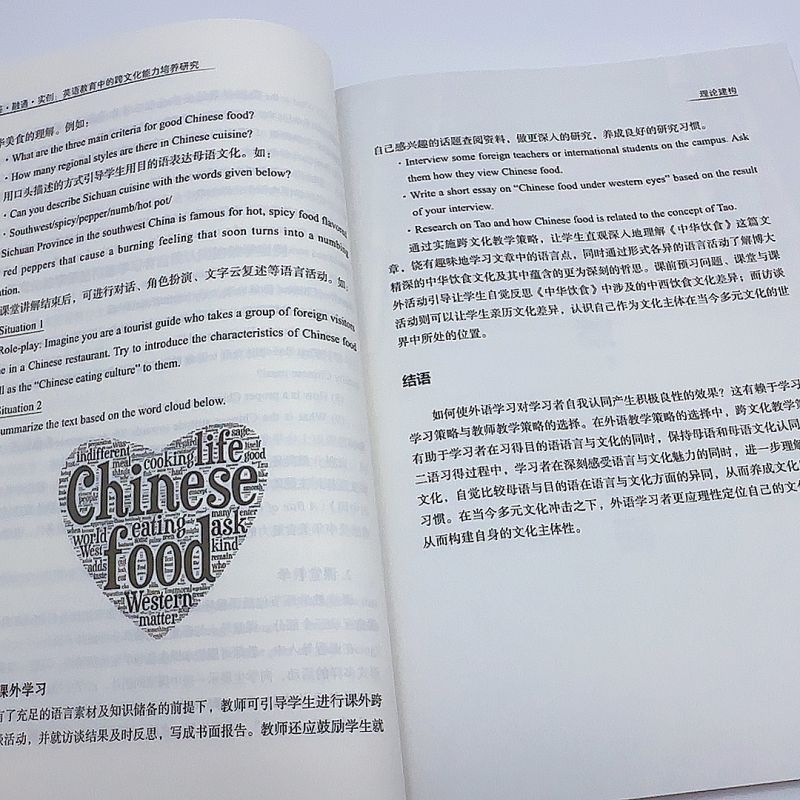 ·融通·实创：英语教育中的跨文化能力培养研究
华美食的理解。例如：
· What are the three main criteria for good Chinese food?
· How many regional styles are there in Chinese cuisine?
用口头描述的方式引导学生用目的语表达母语文化。如：
· Can you describe Sichuan cuisine with the words given below?
· Southwest/spicy/pepper/numb/hot pot/
Sichuan Province in the southwest China is famous for hot, spicy food flavored
red peppers that cause a burning feeling that soon turns into a numbing
课堂讲解结束后，可进行对话、角色扮演、文字云复述等语言活动。如：
Situation 1
Role-play: Imagine you are a tourist guide who takes a group of foreign visitors
in a Chinese restaurant. Try to introduce the characteristics of Chinese food
as the “Chinese eating culture” to them.
Situation 2
summarize the text based on the word cloud below.
indifferent
cooking
life
good
Chinese
world
West
eating
many
enter
ask
adds
food
kind
remain
who
Western
matter
课外学习
有了充足的语言素材及知识储备的前提下，教师可引导学生进行课外跨
活动，并就访谈结果及时反思，写成书面报告。教师还应鼓励学生就
理论建构
自己感兴趣的话题查阅资料，做更深入的研究，养成良好的研究习惯。
· Interview some foreign teachers or international students on the campus. Ask
them how they view Chinese food.
· Write a short essay on “Chinese food under western eyes” based on the result
of your interview.
· Research on Tao and how Chinese food is related to the concept of Tao.
通过实施跨文化教学策略，让学生直观深入地理解《中华饮食》这篇文
章，饶有趣味地学习文章中的语言点，同时通过形式各异的语言活动了解博大
精深的中华饮食文化及其中蕴含的更为深刻的哲思。课前预习问题、课堂与课
外活动引导让学生自觉反思《中华饮食》中涉及的中西饮食文化差异；而访谈
活动则可以让学生亲历文化差异，认识自己作为文化主体在当今多元文化的世
界中所处的位置。
结语
如何使外语学习对学习者自我认同产生积极良性的效果？这有赖于学习
学习策略与教师教学策略的选择。在外语教学策略的选择中，跨文化教学策
有助于学习者在习得目的语语言与文化的同时，保持母语和母语文化认同
二语习得过程中，学习者在深刻感受语言与文化魅力的同时，进一步理解
文化，自觉比较母语与目的语在语言与文化方面的异同，从而养成文化
习惯。在当今多元文化冲击之下，外语学习者更应理性定位自己的文
从而构建自身的文化主体性。